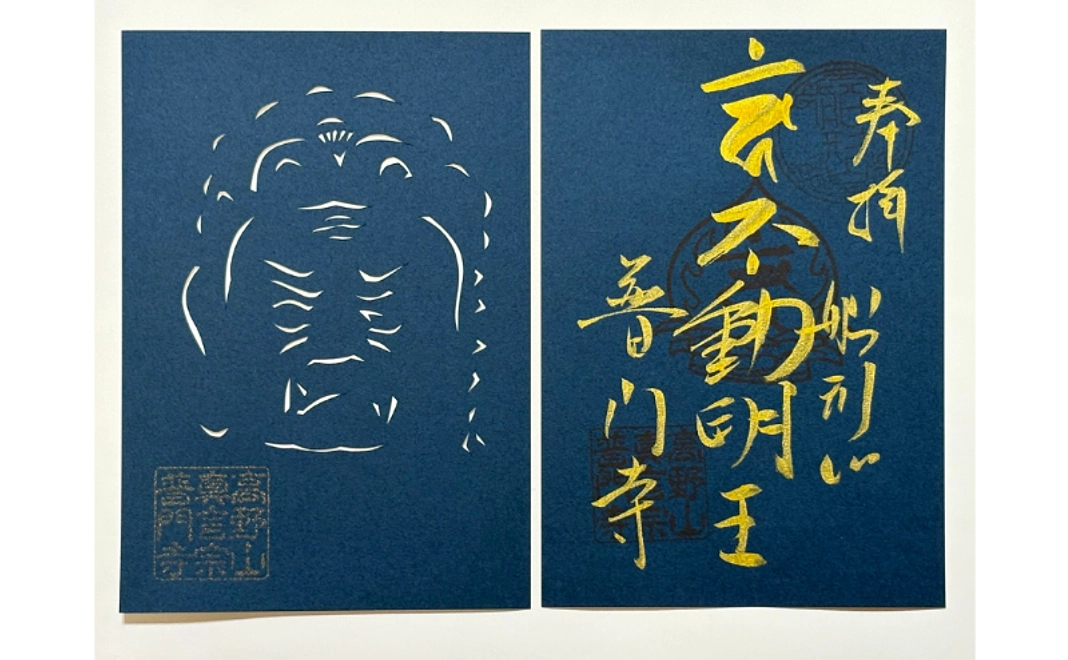 奉拝
船形山
不動明王
普門寺
高野山
真言宗
普門寺
高野山
真言宗
普門寺